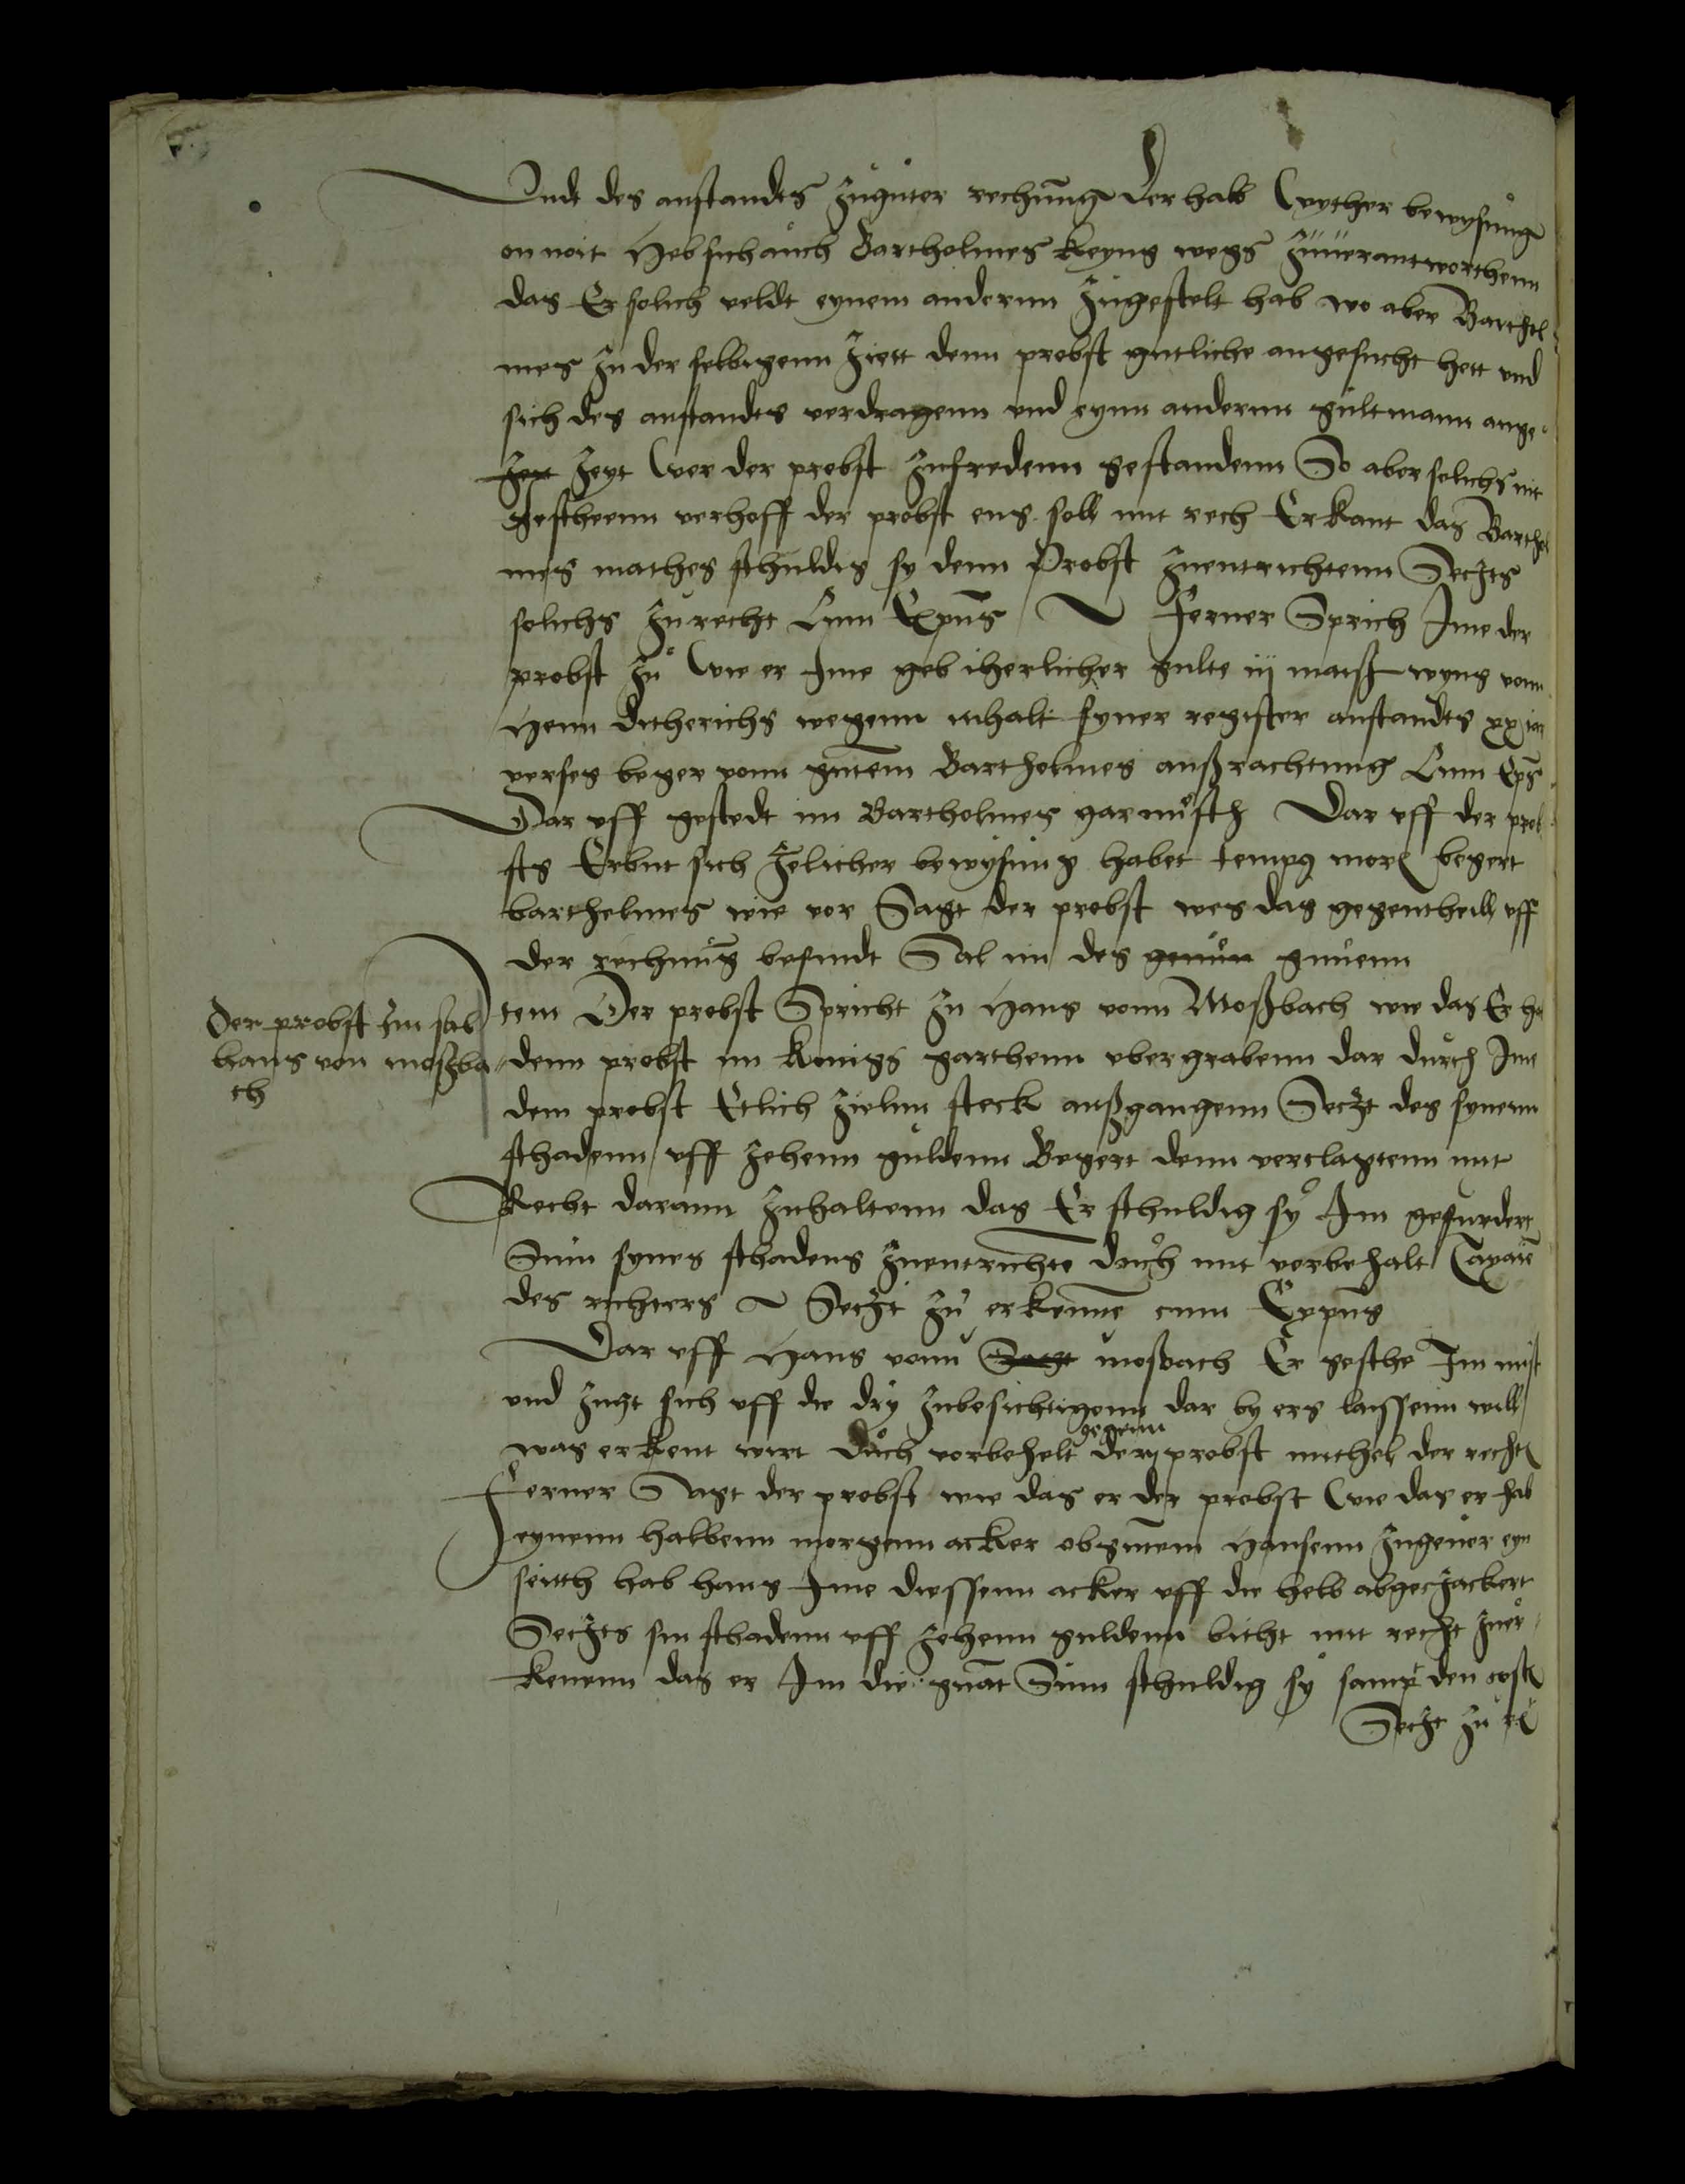 Undt des anstandts zuguter rechnung der halb wyther bewysung
on noit Heb sich auch Bartholmes keyns wegs zuuerantworthenn
das Er solich veldt eynem andernn zugestelt hab wo aber Barthel
mes zu der selbigenn ziett denn probst gutliche angesucht hett vnd
sich des anstandts verdragenn vnd eynn andernn gultmann ange
zeyt zeyt wer der probst zufredenn gestandenn So aber solichs nit
gescheenn verhoff der probst ens soll mit rech Erkant das Barthol
mes mathes schuldig sy denn Probst zuentrichtenn Setzts
solichs zurecht Cum Expns Ferner Sprich Ime der
probst zu wie er Ime geb iherlicher gulte iij mass wyns vonn
Henn ditherichs wegenn inhalt syner register anstandts xx iar
verses beger vonn gntem Bartholmes außrachtung Cum Exps
Dar vff gestedt im Bartholmes gar nuscht Dar vff der prob
sts Erbut sich zelicher bewysung habet tempus more begert
barthelmes wie vor Sagt der probst wes das gegentheill vff
der rechnung befindt Sal im des genuen gnuenn
Der probst zu sal
hans von moßba
ch
tem Der probst Spricht zu Hans vonn Moßbach wie das Er hab
denn probst im konigs garthenn vbergrabenn dar durch Ime
dem probst Etlich zielnn steck außgangenn Setzt des synenn
schadenn vff zehenn guldenn Begert denn verclagtenn mit
Recht darann zuhaltenn das Er schuldig sy Im gefurdert
Sum synes schadens zuentrichte duch mit vorbehalt Taxacie
des richters Setzt zu erkenne cum Expns
Dar vff Hans vonn Sagt mosbach Er gesthe Im nust
vnd zugt sich vff die dry zubesichtigenn dar by ers laissenn will
was erkent wirt duch vorbehelt gegenn dem probst mithel der recht
Ferner Sagt der probst wie das er der probst wie das er hab
eynenn halbenn morgenn acker obgntem Hansenn zugeuer eyn
seitth hab hans Ime diessenn acker vff die helb abgezackert
Setzts sin schadenn vff zehenn guldenn bitht mit recht zuer
kenenn das er Im die gnat Sum schuldig sy sampt den cost
Setzt zu re